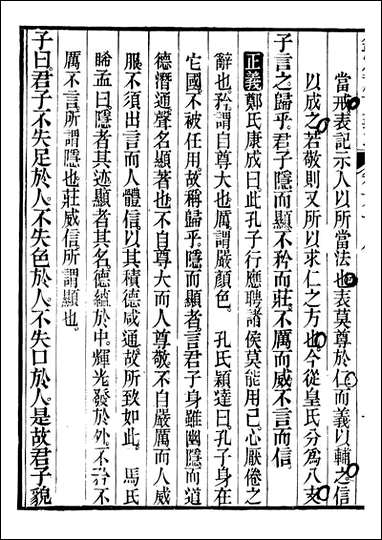 當戒表記示人以所當法也表莫尊於仁而義以輔之信
以成之若敬則又所以求仁之方也今從皇氏分為八支
子言之歸乎君子隱而顯不矜而莊不厲而威不言而信
正義鄭氏康成曰此孔子行應聘諸侯莫能用己心厭倦之
辭也矜謂自尊大也厲謂嚴顏色 孔氏穎達曰孔子身在
它國不被任用故稱歸乎隱而顯者言君子身雖幽隱而道
德潛通聲名顯著也不自尊大而人尊敬不自嚴厲而人威
服不須出言而人體信以其積德咸通故所致如此 馬氏
睎孟曰隱者其迹顯者其名德蘊於中輝光發於外不矜不
厲不言所謂隱也莊威信所謂顯也
子曰君子不失足於人不失色於人不失口於人是故君子貌